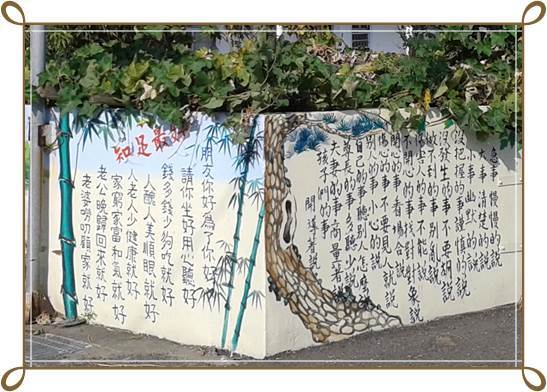 知足最好
朋友你好為了你好
請你坐好用心聽好
錢多錢少夠吃就好
人醜人美順眼就好
人老人少健康就好
家窮家富和氣就好
老公晚歸回來就好
老婆嘮叨顧家就好
急事 慢慢的說
大事 清楚的說
小事 幽默的說
沒把握的事謹慎的說
沒發生的事不要胡說
做不到的事別亂說
的事不能說
不開心的事找對對象說
開心的事看場合說
傷心的事不要見人就說
別人的事小心的說
自己的事聽別怎麼說
尊長的事多聽少說
夫妻的事商量著說
孩子們的事
開導著說